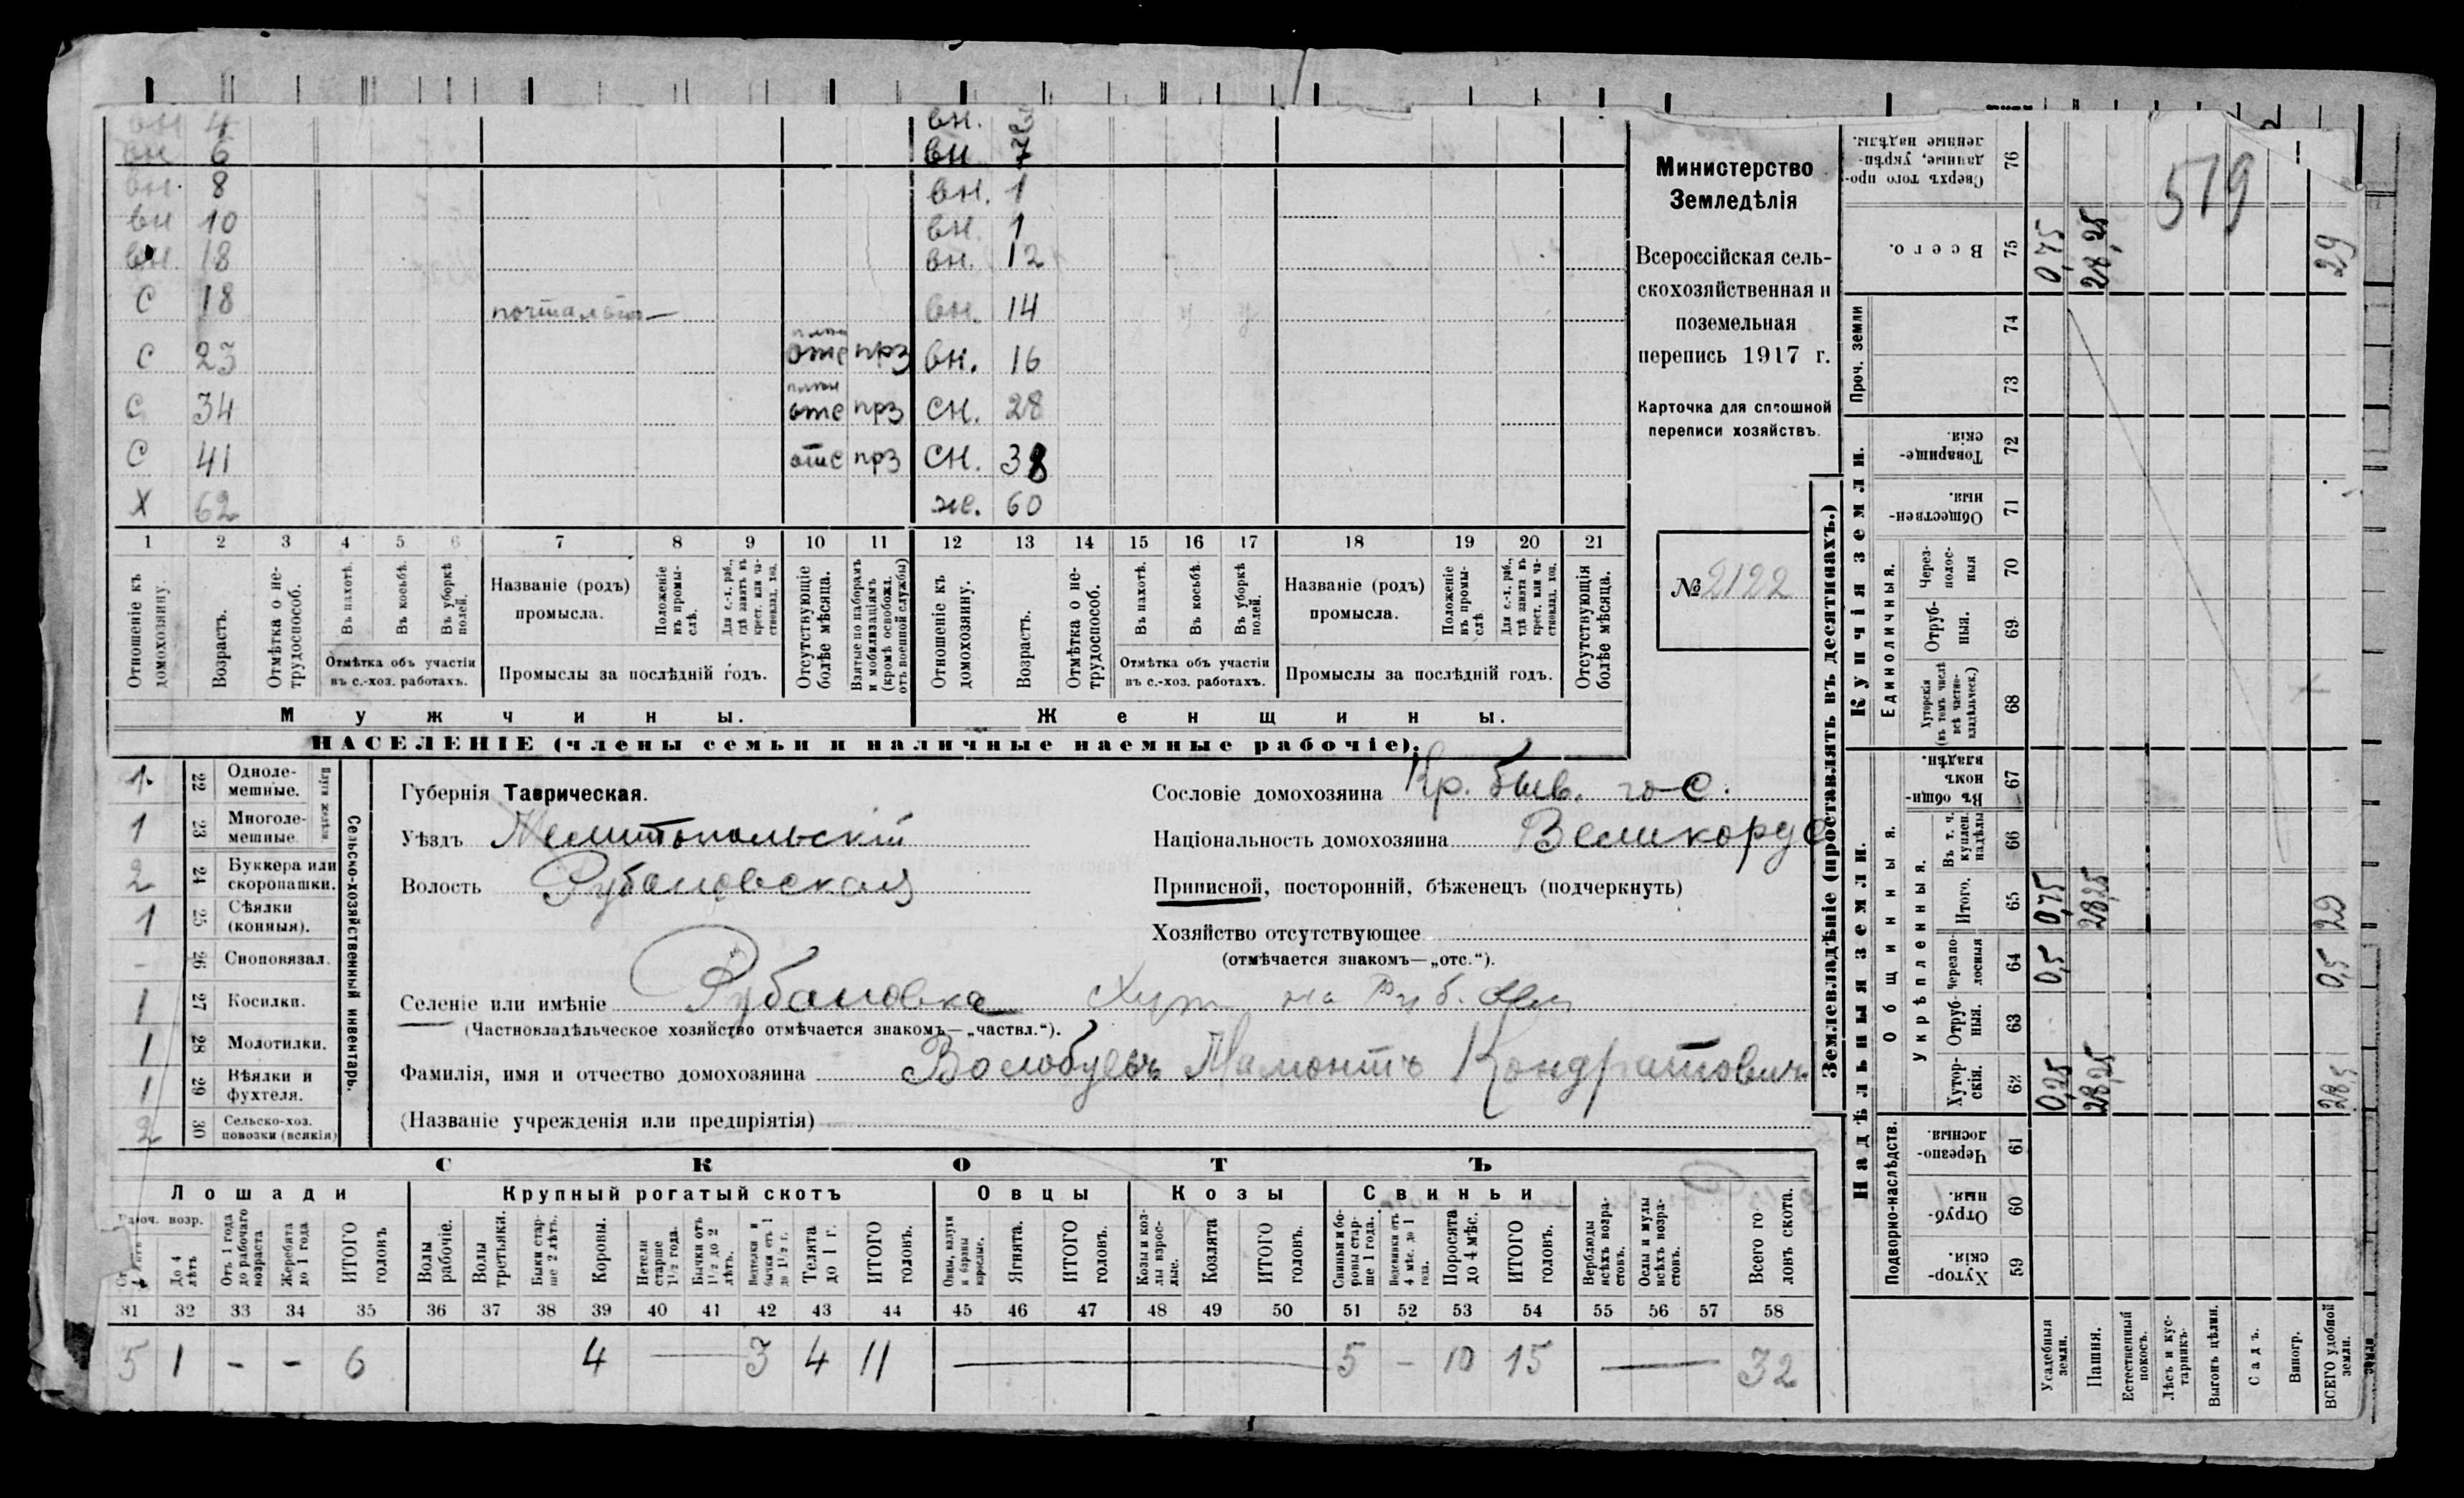 вн 4 вн. 
вн 6 вн 7
вн. 8 вн. 1
вн 10 вн. 1
вн. 18 вн. 12
С 18 вн. 14
С 23 отс прз вн. 16
С 34 отс прз сн. 28
С 41 отс прз сн. 38
Х 62 же. 60
1 2 3 4 5 6 7 8 9 10 11 12 13 14 15 16 17 18 19 20 21
Отношеніе къ домохозяину.
Возрастъ.
Отмѣтка о не-трудоспособ.
Въ пахотѣ.
Въ косьбѣ.
Въ уборкѣ полей.
Отмѣтка объ участіи
въ с.-хоз. работахъ.
Названіе (родъ)
промысла.
Положеніе въ промы-слѣ.
Для с.-х. раб., гдѣ занятъ въ крест. или ча-стновлад. хоз.
Промыслы за послѣдній годъ.
Отсутствующіе болѣе мѣсяца.
Взятые по наборамъ и мобилизаціямъ (кромѣ освобожд. отъ военной службы)
Отношеніе къ домохозяину.
Возрастъ.
Отмѣтка о не-трудоспособ.
Въ пахотѣ.
Въ косьбѣ.
Въ уборкѣ полей.
Отмѣтка объ участіи
въ с.-хоз. работахъ.
Названіе (родъ)
промысла.
Положеніе въ промы-слѣ
Для с.-х. раб., гдѣ занята въ крест. или ча-стновлад. хоз.
Промыслы за послѣдній годъ.
Отсутствующія болѣе мѣсяца.
Мужчины.
Женщины.
НАСЕЛЕНІЕ (члены семьи и наличные наемные рабочіе).
Министерство
Земледѣлія
Всероссійская сель-
скохозяйственная и
поземельная
перепись 1917 г.
Карточка для сплошной
переписи хозяйствъ.
№ 2122
1. 22 Одноле-мешные.
1 23 Многоле-мешные.
2 24 Буккера или скоропашки.
1 25 Сѣялки (конныя).
- 26 Сноповязал.
1 27 Косилки.
1 28 Молотилки.
1 29 Вѣялки и фухтеля.
2 30 Сельско-хоз. повозки (всякія)
Сельско-хозяйственный инвентарь.
Губернія Таврическая.
Уѣздъ Мелитопольскій
Волость Рубановская
Сословіе домохозяина Кр. быв. го-с.
Національность домохозяина Великорус
Приписной, посторонній, бѣженецъ (подчеркнуть)
Хозяйство отсутствующее
(отмѣчается знакомъ—„отс.“).
Селеніе или имѣніе Рубановка Хут на Руб.
(Частновладѣльческое хозяйство отмѣчается знакомъ—„частвл.“).
Фамилія, имя и отчество домохозяина Воелобуевъ Мамонтъ Кондратовичъ
(Названіе учрежденія или предпріятія)
СКОТЪ
Лошади Крупный рогатый скотъ Овцы Козы Свиньи
Рабоч. возр.
До 4 лѣтъ
Отъ 1 года до рабочаго возраста
Жеребята до 1 года
ИТОГО головъ
Волы рабочіе.
Волы третьяки.
Быки стар-ше 2 лѣтъ.
Коровы.
Нетели старше 1½ года.
Бычки отъ 1½ до 2 лѣтъ.
Телята до 1 г.
ИТОГО головъ.
Ягнята.
ИТОГО головъ.
Козы и коз-лы взрос-лые.
Козлята
ИТОГО головъ.
Свиньи и бо-ровы стар-ше 1 года.
Поросята до 4 мѣс.
ИТОГО головъ.
Верблюды всѣхъ возра-стовъ.
Ослы и мулы всѣхъ возра-стовъ.
Всего го-ловъ скота.
31 32 33 34 35 36 37 38 39 40 41 42 43 44 45 46 47 48 49 50 51 52 53 54 55 56 57 58
5 1 - - 6 4 3 4 11 5 - 10 15 32
Землевладѣніе (проставлять въ десятинахъ.)
Надѣльныя земли.
Купчія земли.
Проч. земли
Подворно-наслѣдств.
Общинныя.
Укрѣпленныя.
Единоличныя.
Сверхъ того про-данные, укрѣп-ленные надѣлы. 76
Всего. 75 0,75 28,25 29
74
73
Товарище-скія. 72
Обществен-ныя. 71
Через-полос-ныя 70
Отруб-ныя. 69
Хуторскія (въ томъ числѣ всѣ частно-владѣльческ.) 68
Въ общин-номъ владѣн. 67
Въ т. ч. куплен. надѣлы 66
Итого. 65 0,75 28,25 29
Черезпо-лосныя 64 0,5 0,5
Отруб-ныя. 63
Хутор-скія. 62 0,25 28,25 28,5
Черезпо-лосныя. 61
Отруб-ныя. 60
Хутор-скія. 59
Усадебныя земли.
Пашня.
Естественный покосъ.
Лѣсъ и кус-тарникъ.
Выгонъ цѣлин.
Садъ.
Виногр.
ВСЕГО удобной земли.
519